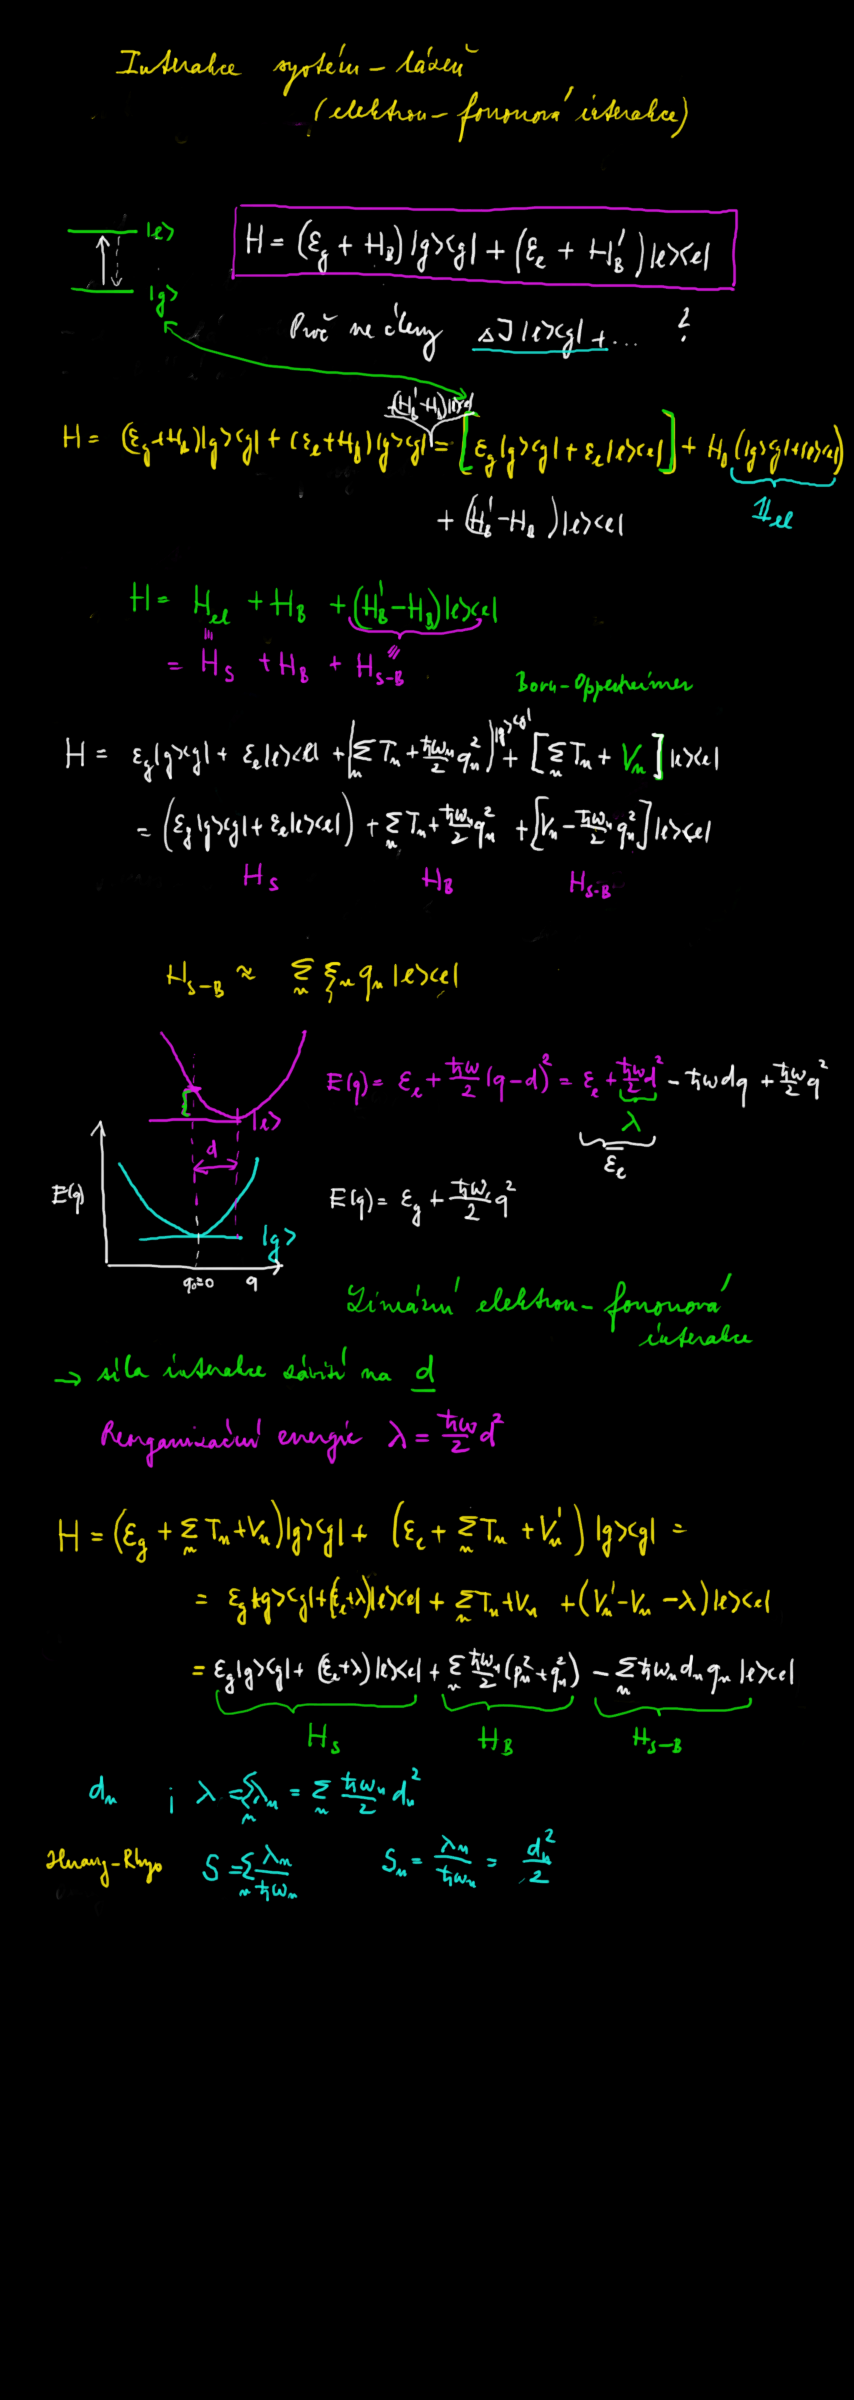 Interakce systém – lázeň
(elektron – fononová interakce)
|e>
H = (ε_g + H_B) |g><g| + (ε_e + H_B') |e><e|
|g>
Proč ne členy s J |e><g| + ... ?
+(H_B' - H_B)|e><e|
H = (ε_g + H_B)|g><g| + (ε_e + H_B)|g><g| = [ε_g |g><g| + ε_e |e><e|] + H_B (|g><g| + |e><e|)
+ (H_B' - H_B) |e><e|
1_el
H = H_el + H_B + (H_B' - H_B) |e><e|
= H_S + H_B + H_{S-B}
Born-Oppenheimer
H = ε_g |g><g| + ε_e |e><e| + [Σ_n T_n + ħω_n/2 q_n²] |g><g| + [Σ_n T_n + V_n] |e><e|
= (ε_g |g><g| + ε_e |e><e|) + Σ_n T_n + ħω_n/2 q_n² + [V_n - ħω_n/2 q_n²] |e><e|
H_S H_B H_{S-B}
H_{S-B} ≈ Σ_n ξ_n q_n |e><e|
E(q) = ε_e + ħω/2 (q-d)² = ε_e + ħω/2 d² - ħω d q + ħω/2 q²
|e>
λ
d
ε̄_e
E(q)
E(q) = ε_g + ħω/2 q²
|g>
q_0=0 q
Lineární elektron – fononová
interakce
→ síla interakce závisí na d
Reorganizační energie λ = ħω/2 d²
H = (ε_g + Σ_n T_n + V_n) |g><g| + (ε_e + Σ_n T_n + V_n') |g><g| =
= ε_g |g><g| + (ε_e + λ) |e><e| + Σ_n T_n + V_n + (V_n' - V_n - λ) |e><e|
= ε_g |g><g| + (ε_e + λ) |e><e| + Σ_n ħω_n/2 (p_n² + q_n²) - Σ_n ħω_n d_n q_n |e><e|
H_S H_B H_{S-B}
d_n ; λ = Σ_n λ_n = Σ_n ħω_n/2 d_n²
Huang-Rhys S = Σ_n λ_n/ħω_n S_n = λ_n/ħω_n = d_n²/2